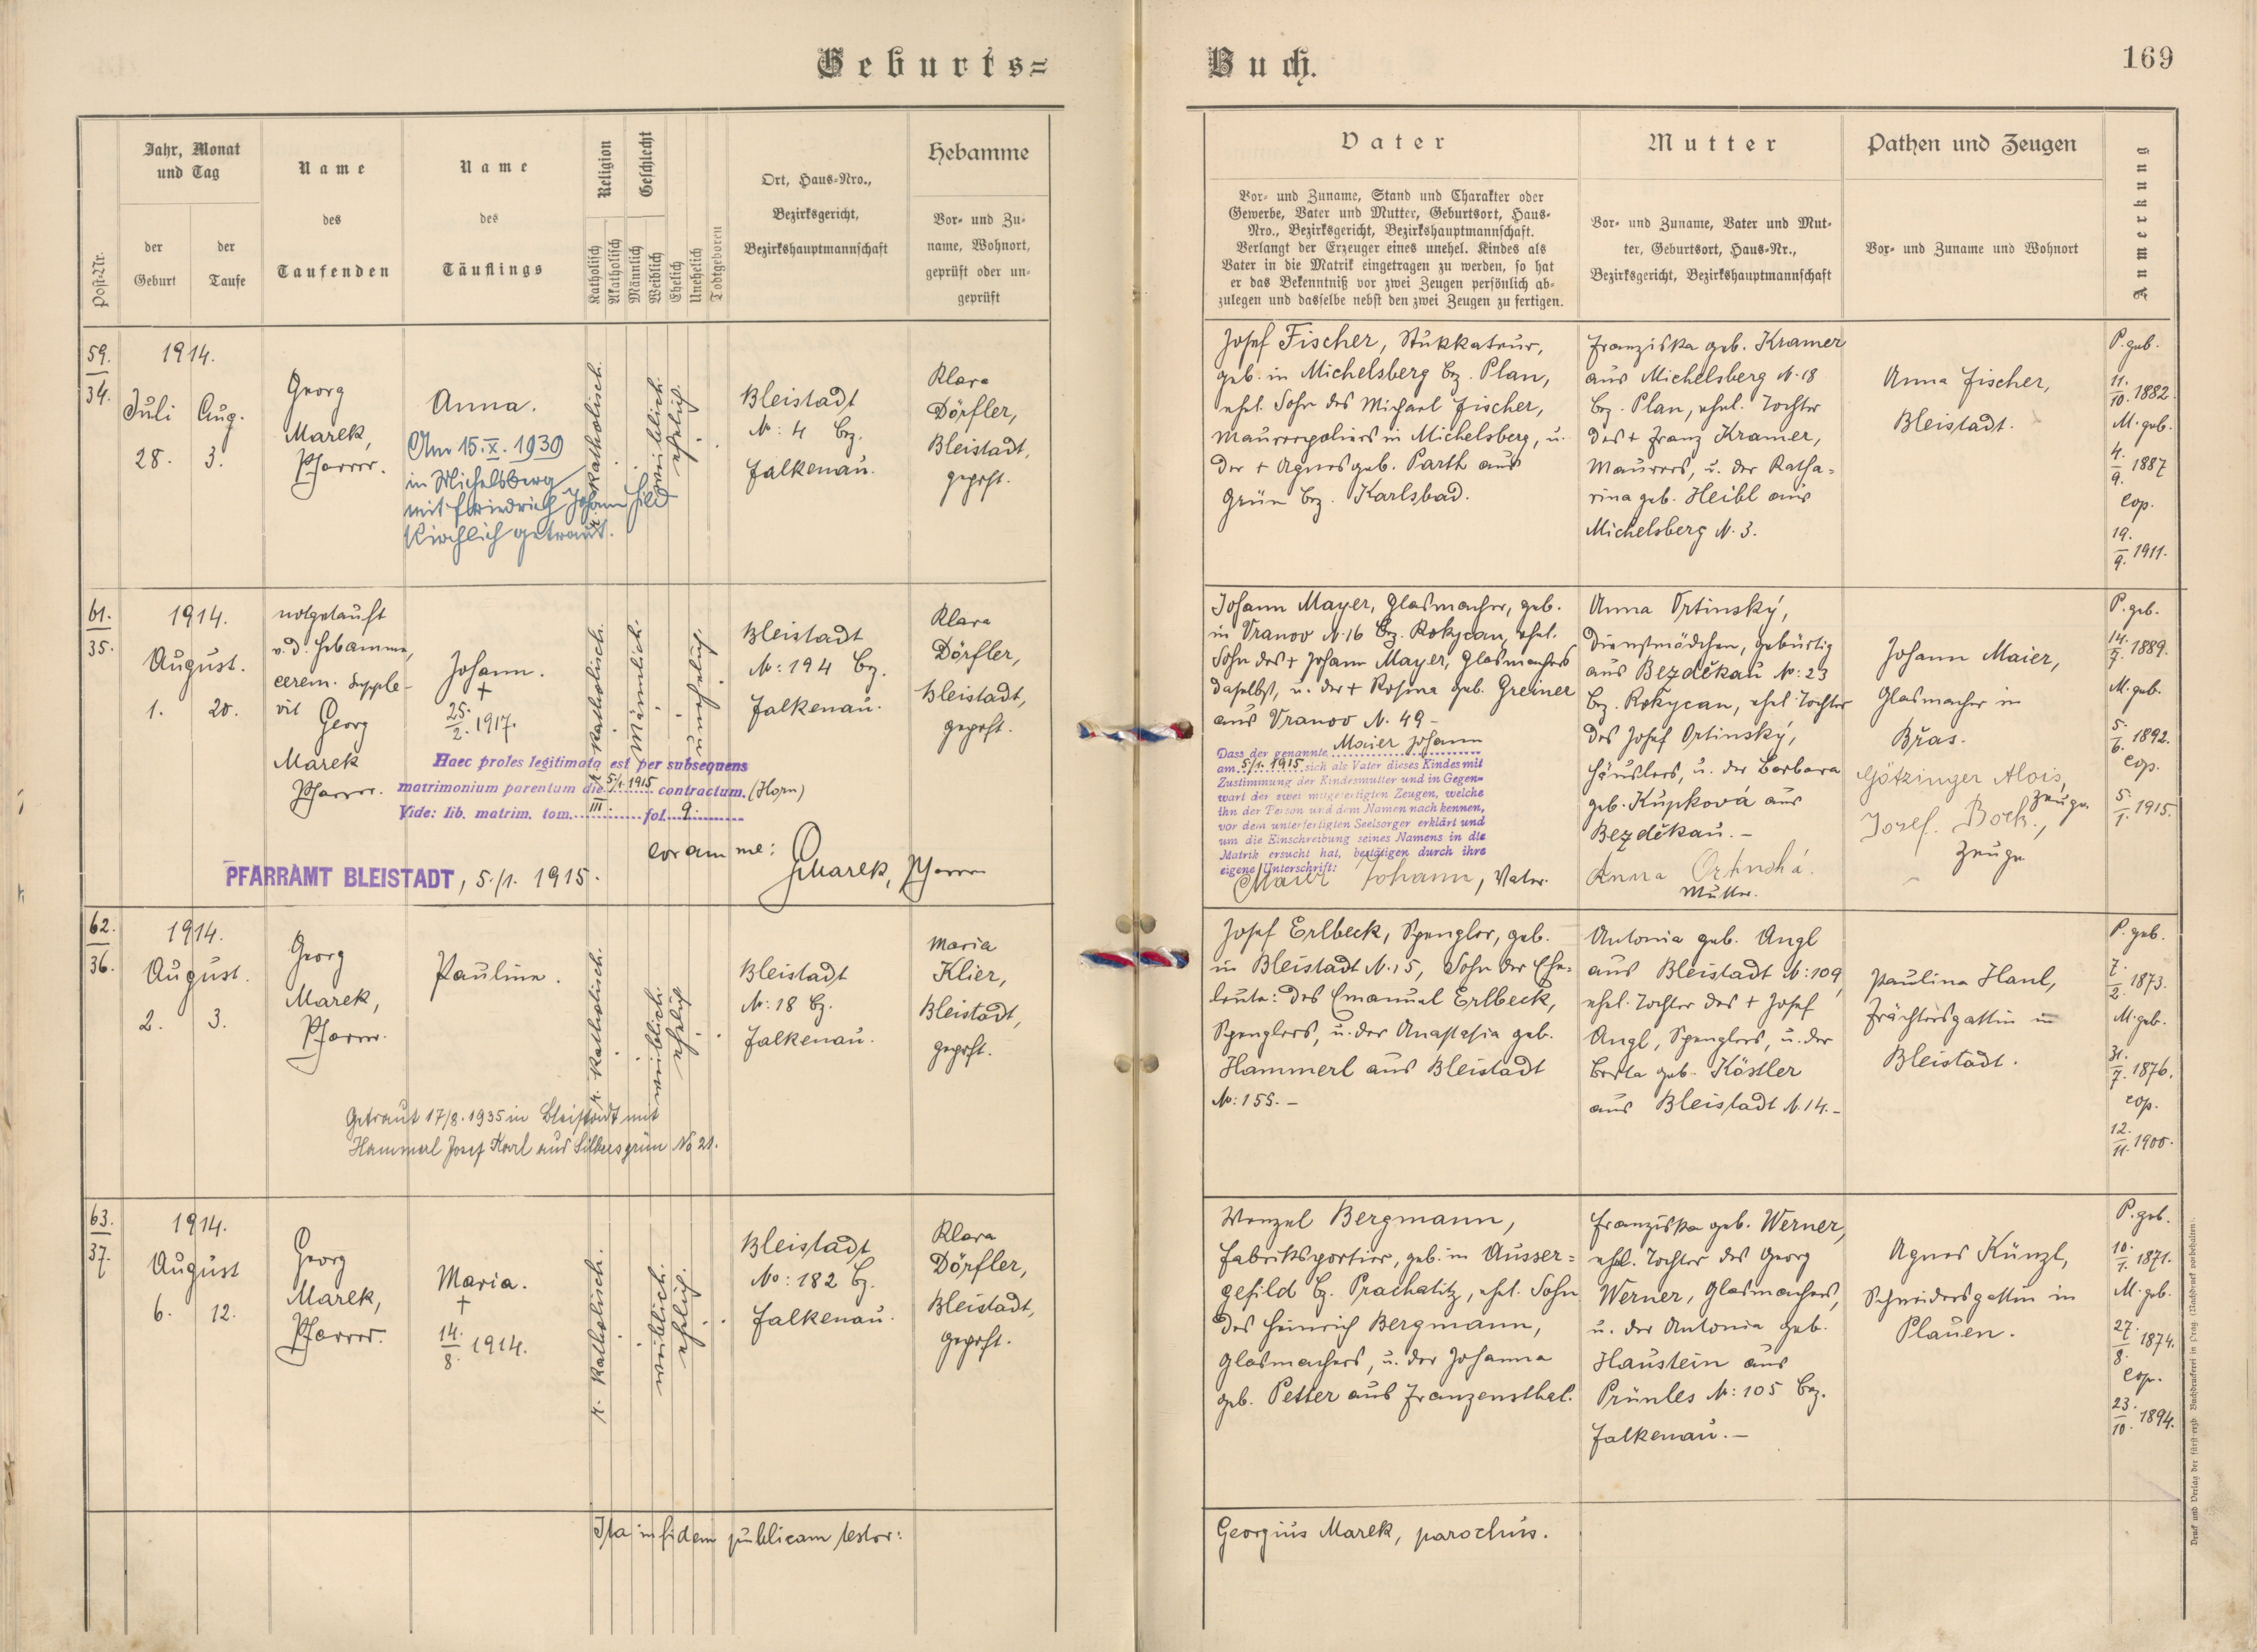 Geburts=
Buch.
169
Post-Nr.
Jahr, Monat
und Tag
der
Geburt
der
Taufe
Name
des
Taufenden
Name
des
Täuflings
Religion
Katholisch
Akatholisch
Geschlecht
Männlich
Weiblich
Ehelich
Unehelich
Todtgeboren
Ort, Haus-Nro.,
Bezirksgericht,
Bezirkshauptmannschaft
Hebamme
Vor- und Zu-
name, Wohnort,
geprüft oder un-
geprüft
Vater
Vor- und Zuname, Stand und Charakter oder
Gewerbe, Vater und Mutter, Geburtsort, Haus-
Nro., Bezirksgericht, Bezirkshauptmannschaft.
Verlangt der Erzeuger eines unehel. Kindes als
Vater in die Matrik eingetragen zu werden, so hat
er das Bekenntniß vor zwei Zeugen persönlich ab-
zulegen und dasselbe nebst den zwei Zeugen zu fertigen.
Mutter
Vor- und Zuname, Vater und Mut-
ter, Geburtsort, Haus-Nr.,
Bezirksgericht, Bezirkshauptmannschaft
Pathen und Zeugen
Vor- und Zuname und Wohnort
Anmerkung
59.
34.
1914.
Juli
28.
Aug.
3.
Georg
Marek,
Pfarrer.
Anna.
Am 15.X.1939
in Michelsberg
mit Friedrich Johann
Kirchlich getraut.
r. katholisch.
weiblich.
ehelich.
Bleistadt
N: 4 bz.
Falkenau.
Klara
Dörfler,
Bleistadt,
geprft.
Josef Fischer, Stukkateur,
geb. in Michelsberg bz. Plan,
ehel. Sohn des Michael Fischer,
Maurerpoliers in Michelsberg, u.
der + Agnes geb. Parth aus
Grün bz. Karlsbad.
Franziska geb. Kramer
aus Michelsberg N. 18
bz. Plan, ehel. Tochter
des + Franz Kramer,
Maurers, u. der Katha-
rina geb. Heibl aus
Michelsberg N. 3.
Anna Fischer,
Bleistadt.
P. geb.
11./10. 1882.
M. geb.
4./9. 1887
cop.
19./9. 1911.
61.
35.
1914.
August.
1.
20.
notgetauft
v. d. Hebamme,
cerem. supple-
vit Georg
Marek
Pfarrer.
Johann.
+
25./2. 1917.
r. katholisch.
männlich.
unehelich.
Bleistadt
N: 194 bz.
Falkenau.
Klara
Dörfler,
Bleistadt,
geprft.
Haec proles legitimata est per subsequens
matrimonium parentum die 5/1. 1915 contractum. (Horn)
Vide: lib. matrim. tom. III. fol. 9.
coram me:
GMarek, Pfarrer
PFARRAMT BLEISTADT, 5./1. 1915.
Johann Mayer, Glasmacher, geb.
in Vranov N. 16 bz. Rokycan, ehel.
Sohn des + Johann Mayer, Glasmachers
daselbst, u. der + Rosina geb. Greiner
aus Vranov N. 49 -
Dass der genannte Maier Johann
am 5/1. 1915 sich als Vater dieses Kindes mit
Zustimmung der Kindesmutter und in Gegen-
wart der zwei mitgefertigten Zeugen, welche
ihn der Person und dem Namen nach kennen,
vor dem unterfertigten Seelsorger erklärt und
um die Einschreibung seines Namens in die
Matrik ersucht hat, bestätigen durch ihre
eigene Unterschrift:
Maier Johann, Vater.
Anna Ortinský,
Dienstmädchen, gebürtig
aus Bezděkau N: 23
bz. Rokycan, ehel. Tochter
des Josef Ortinský,
Häuslers, u. der Barbara
geb. Kupková aus
Bezděkau. -
Anna Ortinská.
Mutter.
Johann Maier,
Glasmacher in
Břas.
Götzinger Alois,
Zeuge.
Josef Bock,
Zeuge
P. geb.
14./7. 1889.
M. geb.
5./6. 1892.
cop.
5./1. 1915.
62.
36.
1914.
August.
2.
3.
Georg
Marek,
Pfarrer.
Paulina.
r. katholisch.
weiblich.
ehelich
Bleistadt
N: 18 bz.
Falkenau.
Maria
Klier,
Bleistadt,
geprft.
Getraut 17/8. 1935 in Bleistadt mit
Hammerl Josef Karl aus Silbersgrün No 21.
Josef Erlbeck, Spengler, geb.
in Bleistadt N. 15, Sohn der Ehe-
leute: des Emanuel Erlbeck,
Spenglers, u. der Anastasia geb.
Hammerl aus Bleistadt
N: 155. -
Antonia geb. Angl
aus Bleistadt N: 109,
ehel. Tochter des + Josef
Angl, Spenglers, u. der
Berta geb. Köstler
aus Bleistadt N. 14. -
Paulina Hanl,
Frächtersgattin in
Bleistadt.
P. geb.
7./2. 1873.
M. geb.
31./7. 1876.
cop.
12./11. 1900.
63.
37.
1914.
August
6.
12.
Georg
Marek,
Pfarrer.
Maria.
+
14./8. 1914.
r. katholisch.
weiblich.
ehelich.
Bleistadt
No: 182 bz.
Falkenau.
Klara
Dörfler,
Bleistadt,
geprft.
Wenzel Bergmann,
Fabriksportier, geb. in Ausser=
gefild bz. Prachatitz, ehel. Sohn
des Heinrich Bergmann,
Glasmachers, u. der Johanna
geb. Petter aus Franzensthal.
Franziska geb. Werner,
ehel. Tochter des Georg
Werner, Glasmachers,
u. der Antonia geb.
Haustein aus
Prünles N: 105 bz.
Falkenau. -
Agnes Künzl,
Schneidersgattin in
Plauen.
P. geb.
10./1. 1871.
M. geb.
27./8. 1874.
cop.
23./10. 1894.
Ita in fidem publicam testor:
Georgius Marek, parochus.
Druck und Verlag der fürst-erzb. Buchdruckerei in Prag. (Nachdruck vorbehalten).